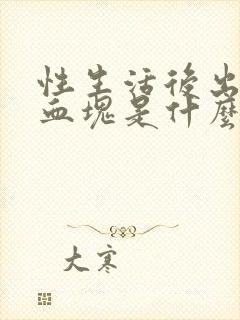 性生活後出
血塊是什麼
大寒